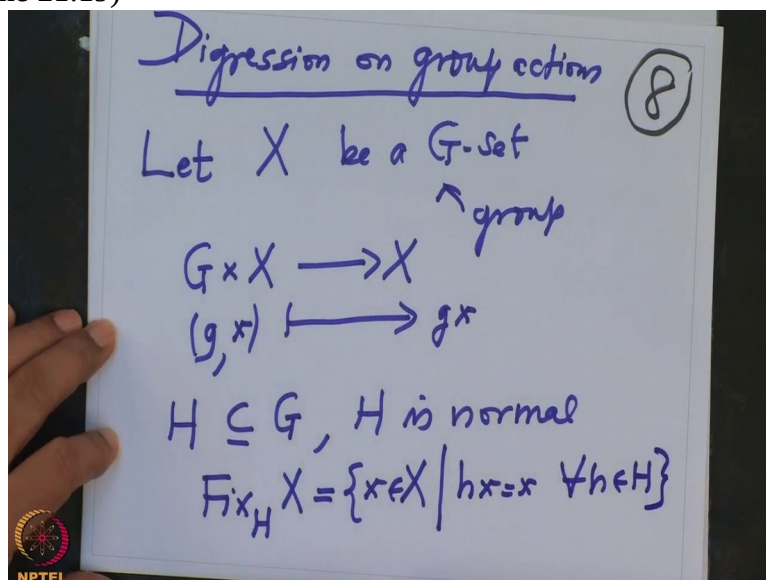 Digression on group actions
8
Let X be a G-set
↖ group
G × X ⟶ X
(g, x) ⟼ gx
H ⊆ G, H is normal
Fix_H X = {x∈X | hx=x ∀h∈H}
NPTEL